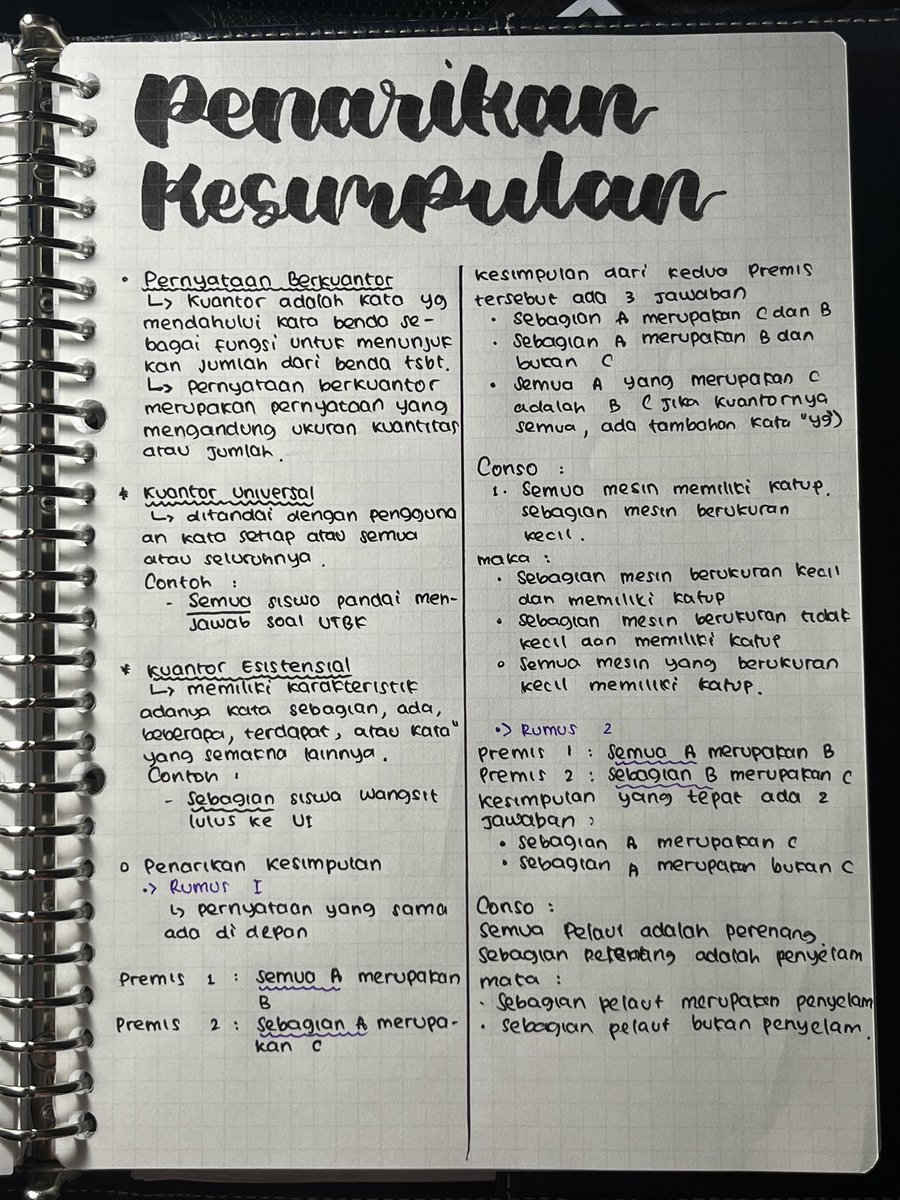 Penarikan
Kesimpulan
• Pernyataan Berkuantor
↳ Kuantor adalah kata yg
mendahului kata benda se-
bagai fungsi untuk menunjuk
kan jumlah dari benda tsbt.
↳ pernyataan berkuantor
merupakan pernyataan yang
mengandung ukuran kuantitas
atau jumlah.
* Kuantor Universal
↳ ditandai dengan pengguna
an kata setiap atau semua
atau seluruhnya.
Contoh :
- Semua siswa pandai men-
jawab soal UTBK
* Kuantor Esistensial
↳ memiliki karakteristik
adanya kata sebagian, ada,
beberapa, terdapat, atau kata"
yang semakna lainnya.
Contoh :
- Sebagian siswa wangsit
lulus ke UI
o Penarikan Kesimpulan
•> Rumus I
↳ pernyataan yang sama
ada di depan
Premis 1 : Semua A merupakan
B
Premis 2 : Sebagian A merupa-
kan C
kesimpulan dari kedua premis
tersebut ada 3 jawaban
• Sebagian A merupakan C dan B
• Sebagian A merupakan B dan
bukan C
• Semua A yang merupakan C
adalah B (jika kuantornya
semua, ada tambahan kata "yg")
Conso :
1. Semua mesin memiliki katup.
sebagian mesin berukuran
kecil.
maka :
• Sebagian mesin berukuran kecil
dan memiliki katup
• Sebagian mesin berukuran tidak
kecil dan memiliki katup
o Semua mesin yang berukuran
kecil memiliki katup.
•> Rumus 2
Premis 1 : Semua A merupakan B
Premis 2 : Sebagian B merupakan C
Kesimpulan yang tepat ada 2
Jawaban :
• Sebagian A merupakan C
• Sebagian A merupakan bukan C
Conso :
Semua Pelaut adalah perenang.
Sebagian perenang adalah penyelam
maka :
• Sebagian pelaut merupakan penyelam
• Sebagian pelaut bukan penyelam.